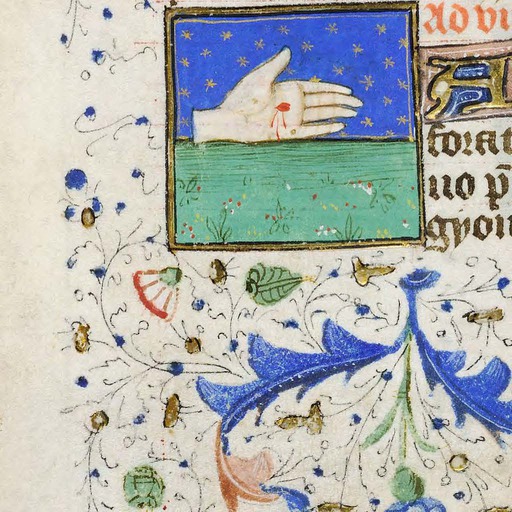 Ad vi
A
forat
uo p̄
gyon